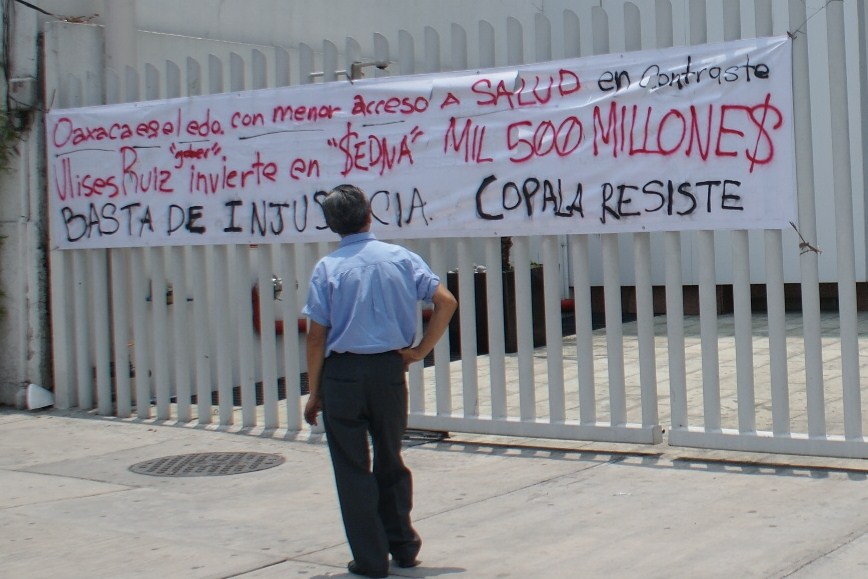 Oaxaca es el edo. con menor acceso A SALUD en Contraste
Ulises Ruiz "gober" invierte en "$EDNA" MIL 500 MILLONE$
BASTA DE INJUSTICIA. COPALA RESISTE